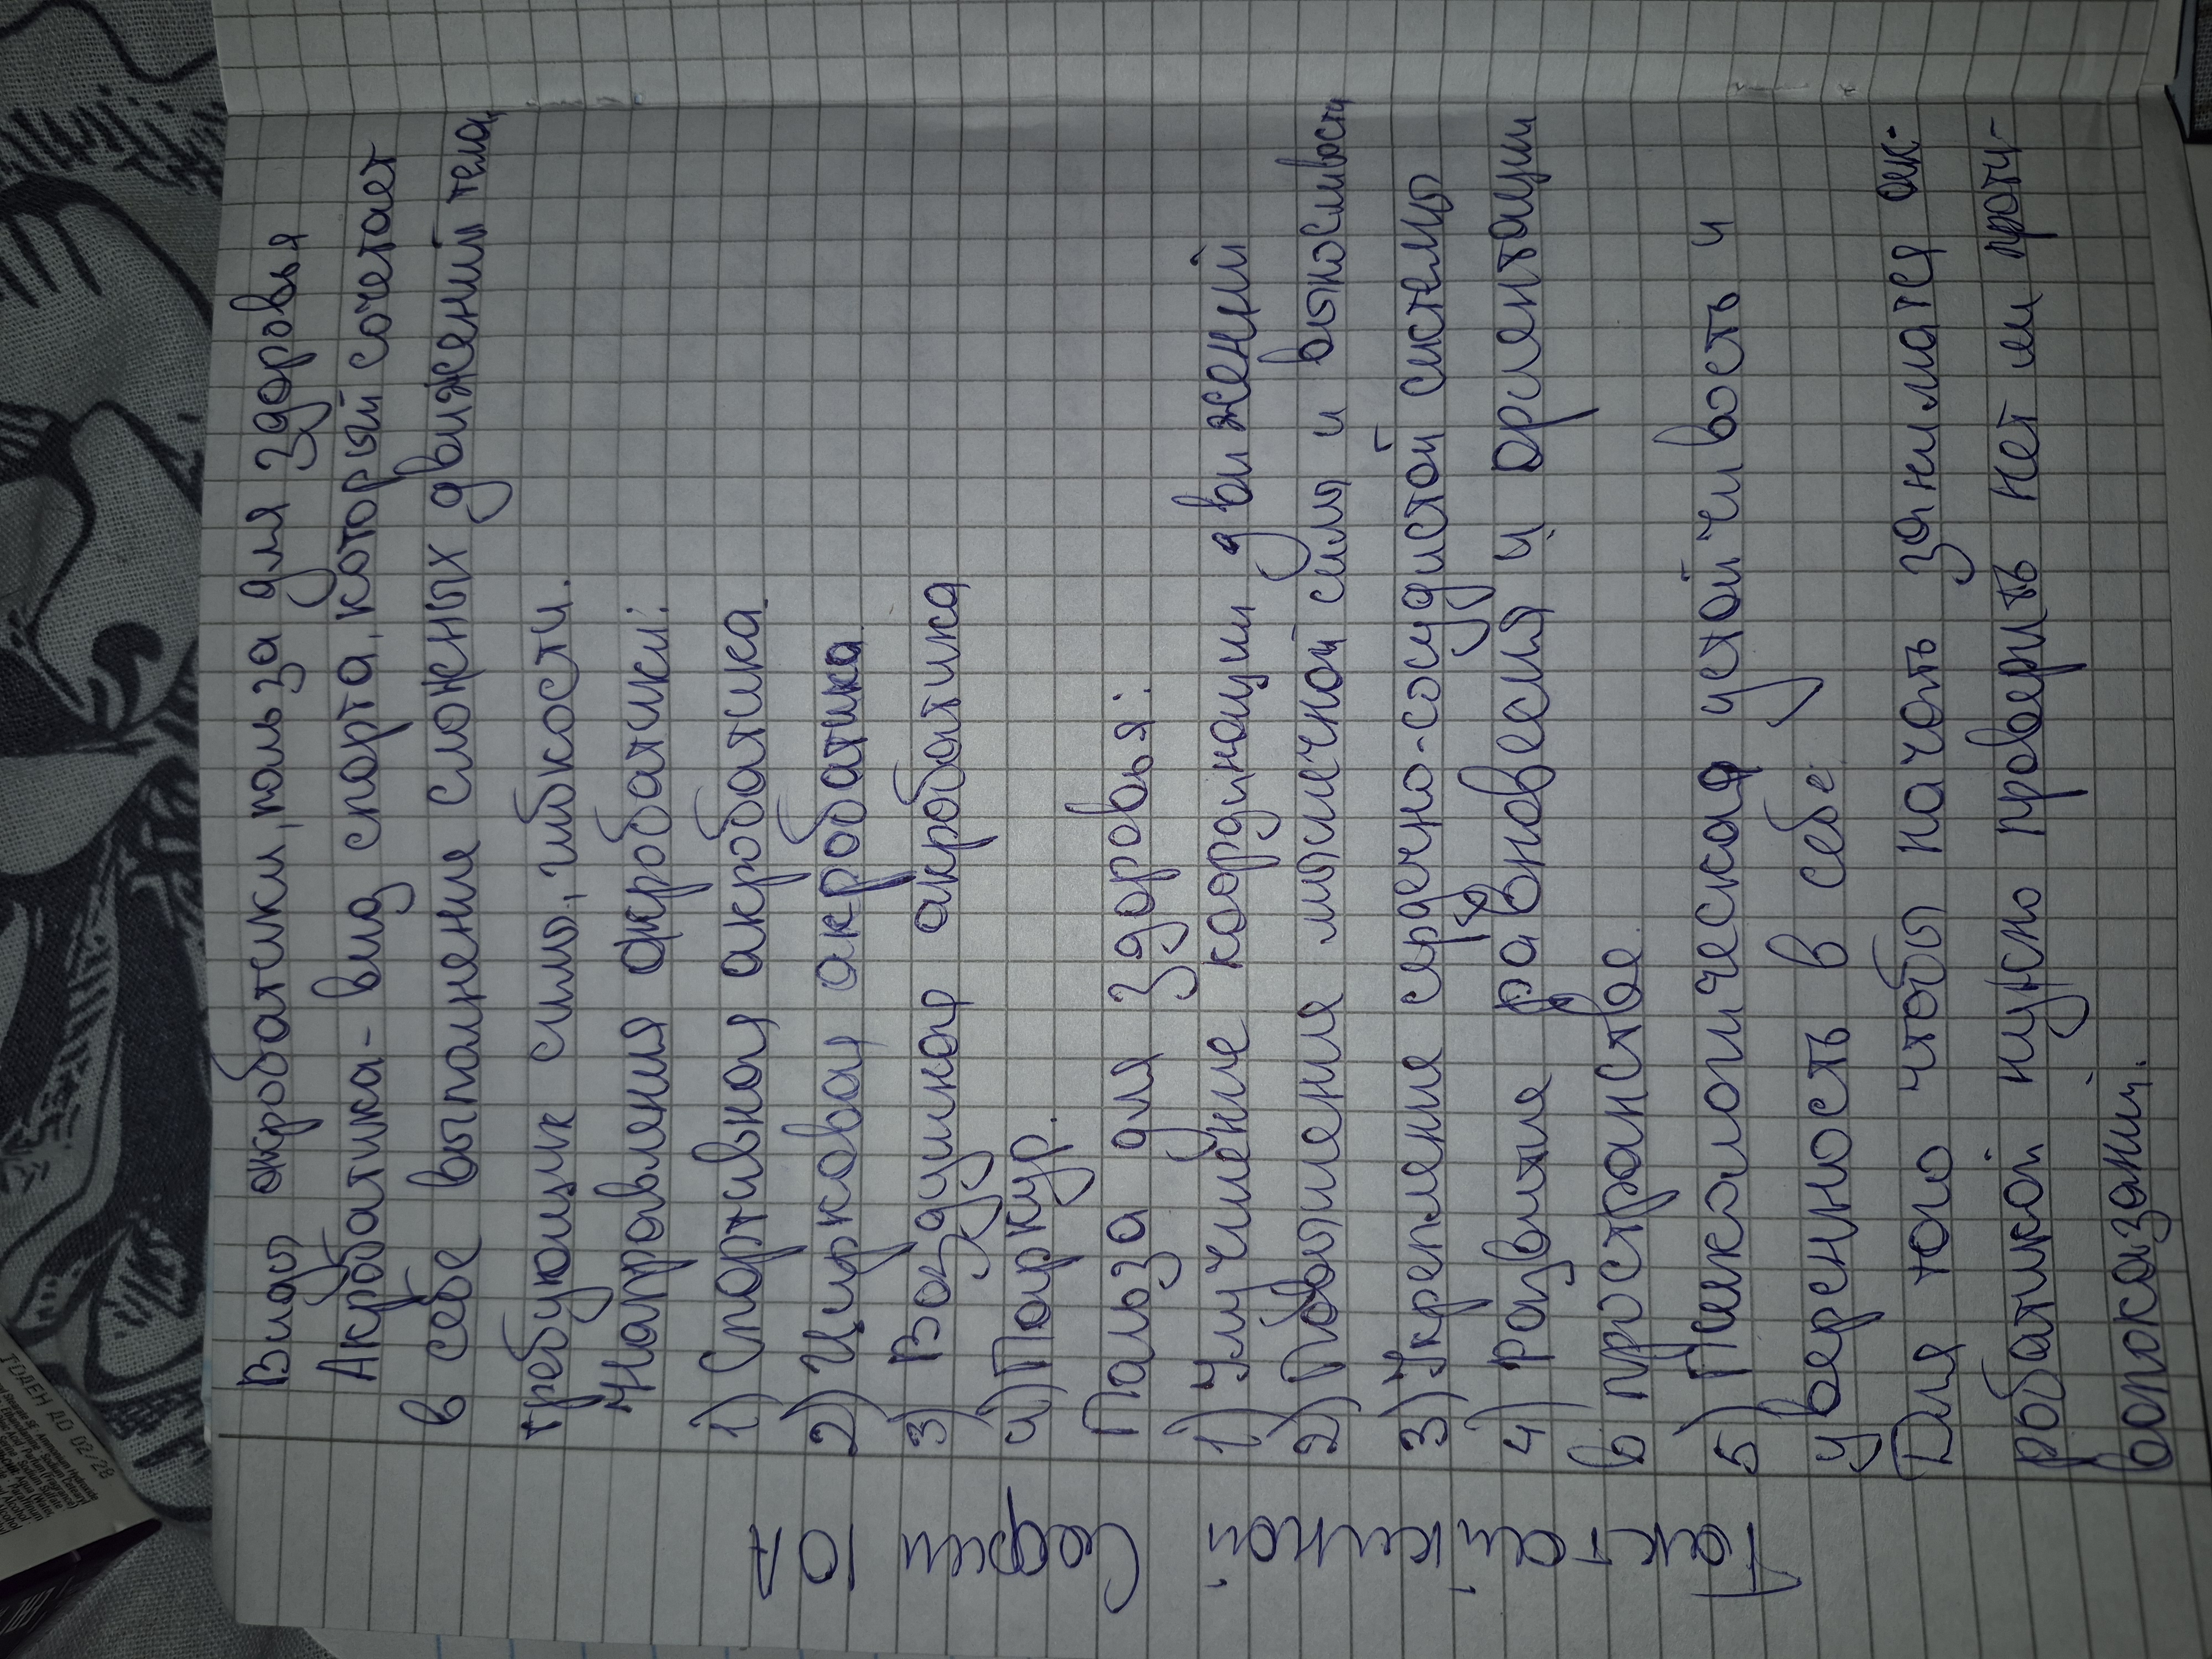 Виды акробатики, польза для здоровья
Акробатика - вид спорта, который сочетает
в себе выполнение сложных движений тела,
требующих силы, гибкости.
Направления акробатики:
1) Спортивная акробатика
2) Цирковая акробатика
3) Воздушная акробатика
4) Паркур.
Польза для здоровья:
1) Улучшение кординации движений
2) Повышение мышечной силы и выносливости
3) Укрепление сердечно-сосудистой системы
4) Развитие равновесия и ориентации
в пространстве
5) Психологическая устойчивость и
уверенность в себе
Для того чтобы начать заниматся ак-
робатикой нужно проверить нет ли проти-
вопоказаний.
Софии
10А
ГОДЕН ДО 02/28